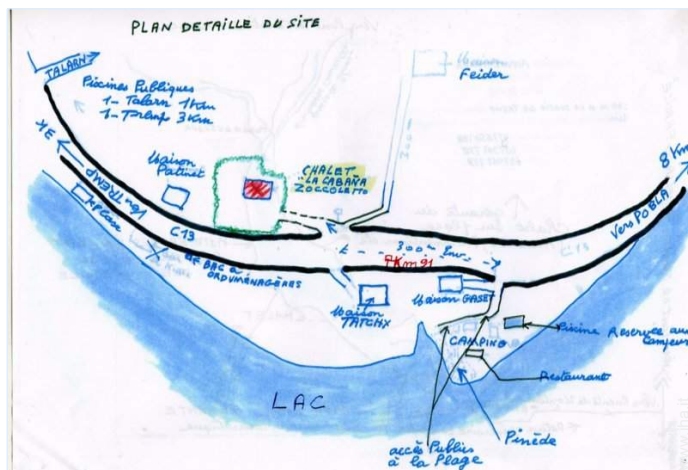 PLAN DETAILLE DU SITE
TALARN
Piscines Publiques
1- Talarn 1Km
1-Tremp 3Km
Maison
Feider
300m
3K
Vers TREMP
Maison
CHALET
"LA CABAÑA
ZOCCOLETTO
8 Km
Vers POBLA
C13
300m Env.
PKm 91
BAC a
ORDUMÉNAGÈRES
Maison
TATCHX
Maison GASET
CAMPING
Piscine Reservée aux
Campeurs
Restaurant
LAC
Pinède
accès Publics
à la Plage